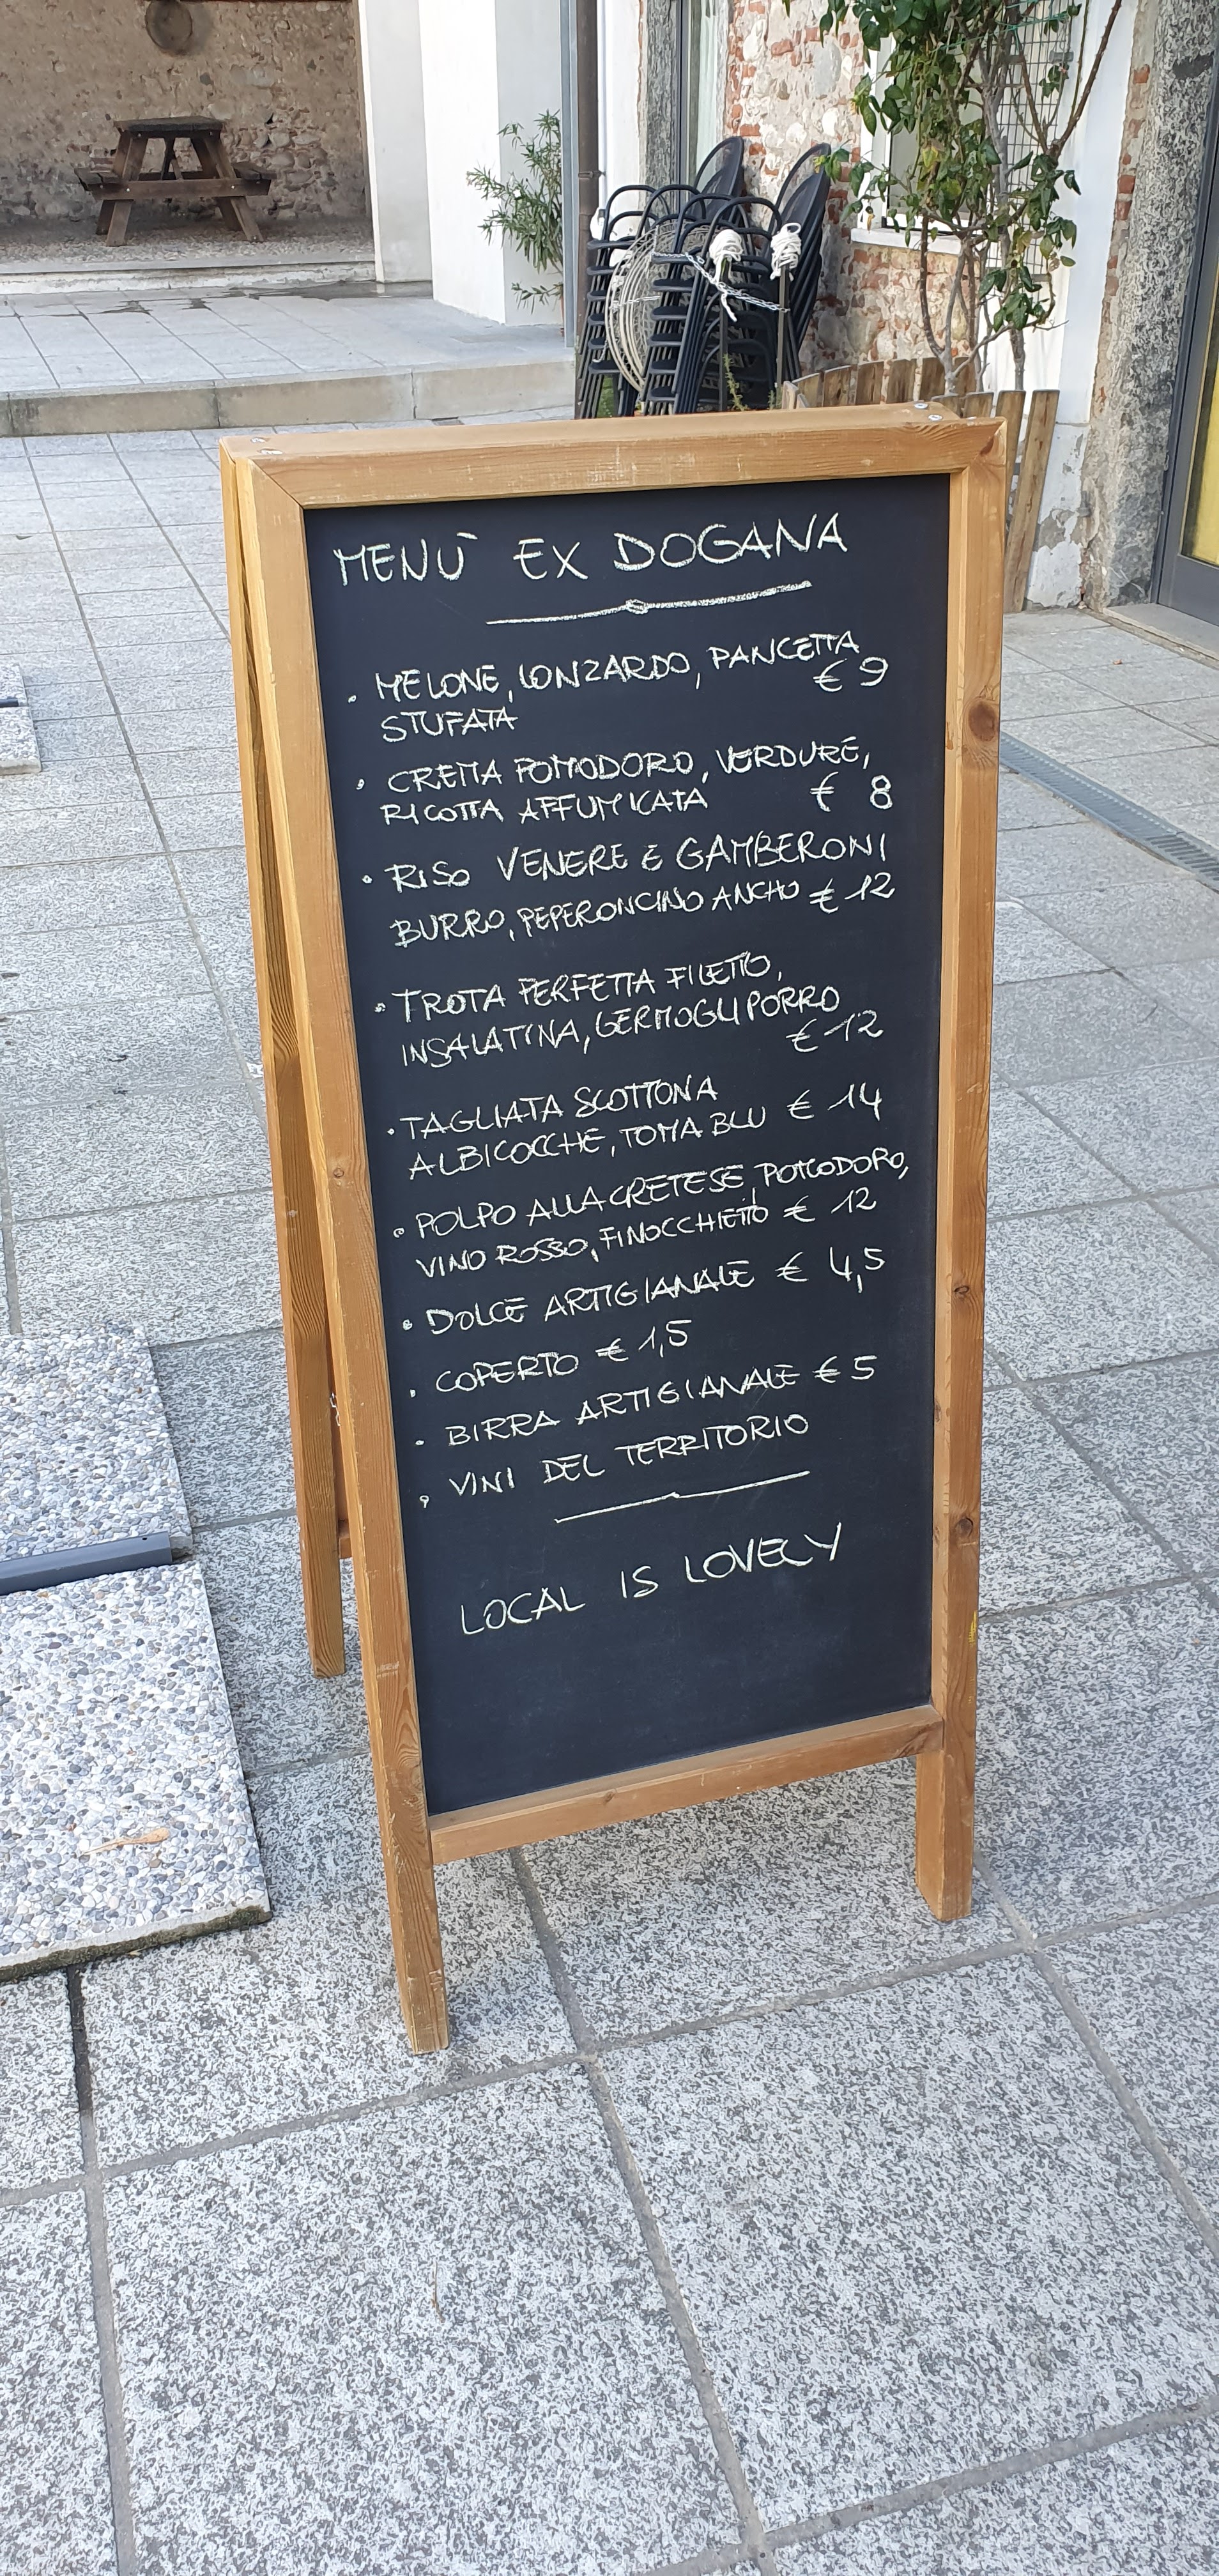 MENÙ EX DOGANA
• MELONE, LONZARDO, PANCETTA
€ 9
STUFATA
• CREMA POMODORO, VERDURE,
RICOTTA AFFUMICATA € 8
• RISO VENERE E GAMBERONI
BURRO, PEPERONCINO ANCHO € 12
• TROTA PERFETTA FILETTO,
INSALATINA, GERMOGLI PORRO
€ 12
• TAGLIATA SCOTTONA
ALBICOCCHE, TOMA BLU € 14
• POLPO ALLA CRETESE, POMODORO,
VINO ROSSO, FINOCCHIETTO € 12
• DOLCE ARTIGIANALE € 4,5
• COPERTO € 1,5
• BIRRA ARTIGIANALE € 5
• VINI DEL TERRITORIO
LOCAL IS LOVELY